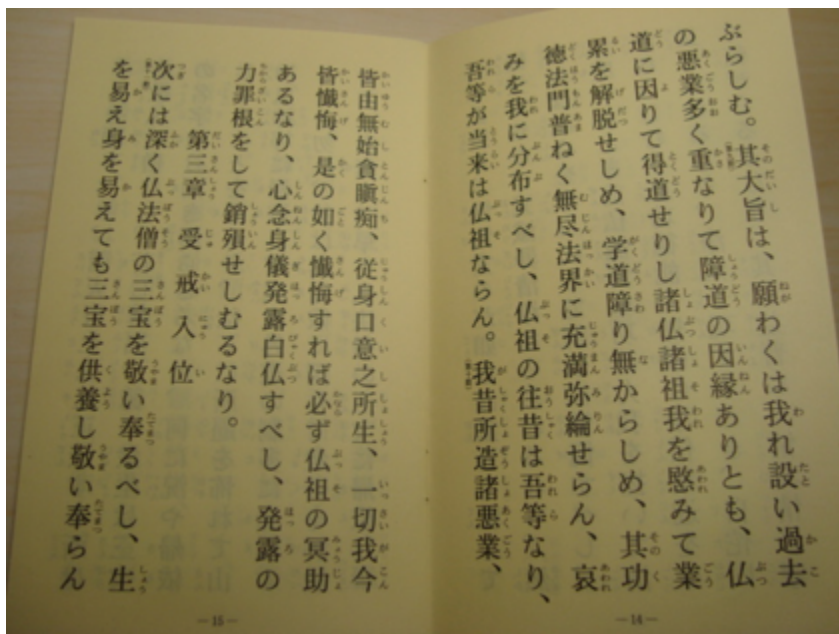 ぶらしむ。其大旨は、願わくは我れ設い過去
の悪業多く重なりて障道の因縁ありとも、仏
道に因りて得道せりし諸仏諸祖我を愍みて業
累を解脱せしめ、学道障り無からしめ、其功
徳法門普ねく無尽法界に充満弥綸せらん、哀
みを我に分布すべし、仏祖の往昔は吾等なり、
吾等が当来は仏祖ならん。我昔所造諸悪業、
—14—
皆由無始貪瞋痴、従身口意之所生、一切我今
皆懺悔、是の如く懺悔すれば必ず仏祖の冥助
あるなり、心念身儀発露白仏すべし、発露の
力罪根をして銷殞せしむるなり。
第三章 受戒入位
次には深く仏法僧の三宝を敬い奉るべし、生
を易え身を易えても三宝を供養し敬い奉らん
—15—